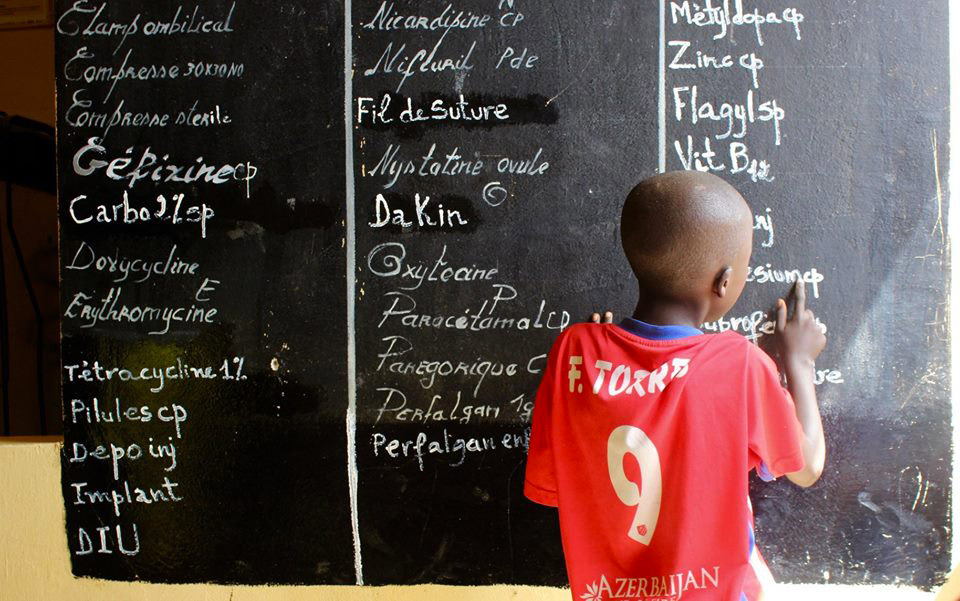 Clamp ombilical
Compresse 30X30 N0
Compresse stérile
Géfixine cp
Carbo 2% sp
Doxycycline
Erythromycine E
Tétracycline 1%
Pilules cp
Depo inj
Implant
DIU
Nicardipine cp
Nifluril Pde
Fil de Suture
Nystatine ovule
Dakin
Oxytocine
Paracétamol cp
Parégorique C
Perfalgan 1g
Perfalgan enf
Métyldopa cp
Zinc cp
Flagyl sp
Vit B12
nj
esium cp
re
F. TORR
9
AZERBAIJAN